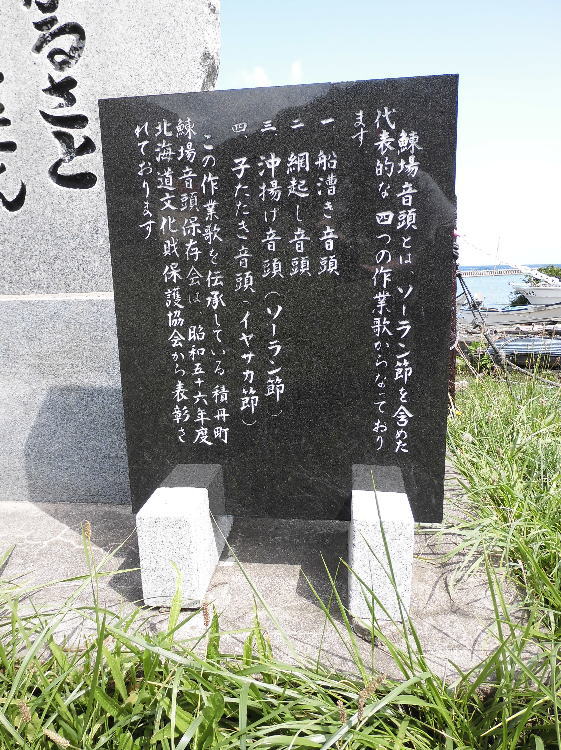 鰊場音頭とは、ソーラン節を含めた
代表的な四つの作業歌からなっており
ます
一 船漕き音頭
二 網起し音頭
三 沖揚げ音頭(ソーラン節)
四、子たたき音頭(イヤサカ節)
この作業歌を伝承している積丹町
鰊場音頭保存会は、昭和五十六年度
北海道文化財保護協会から表彰さ
れております
るさと